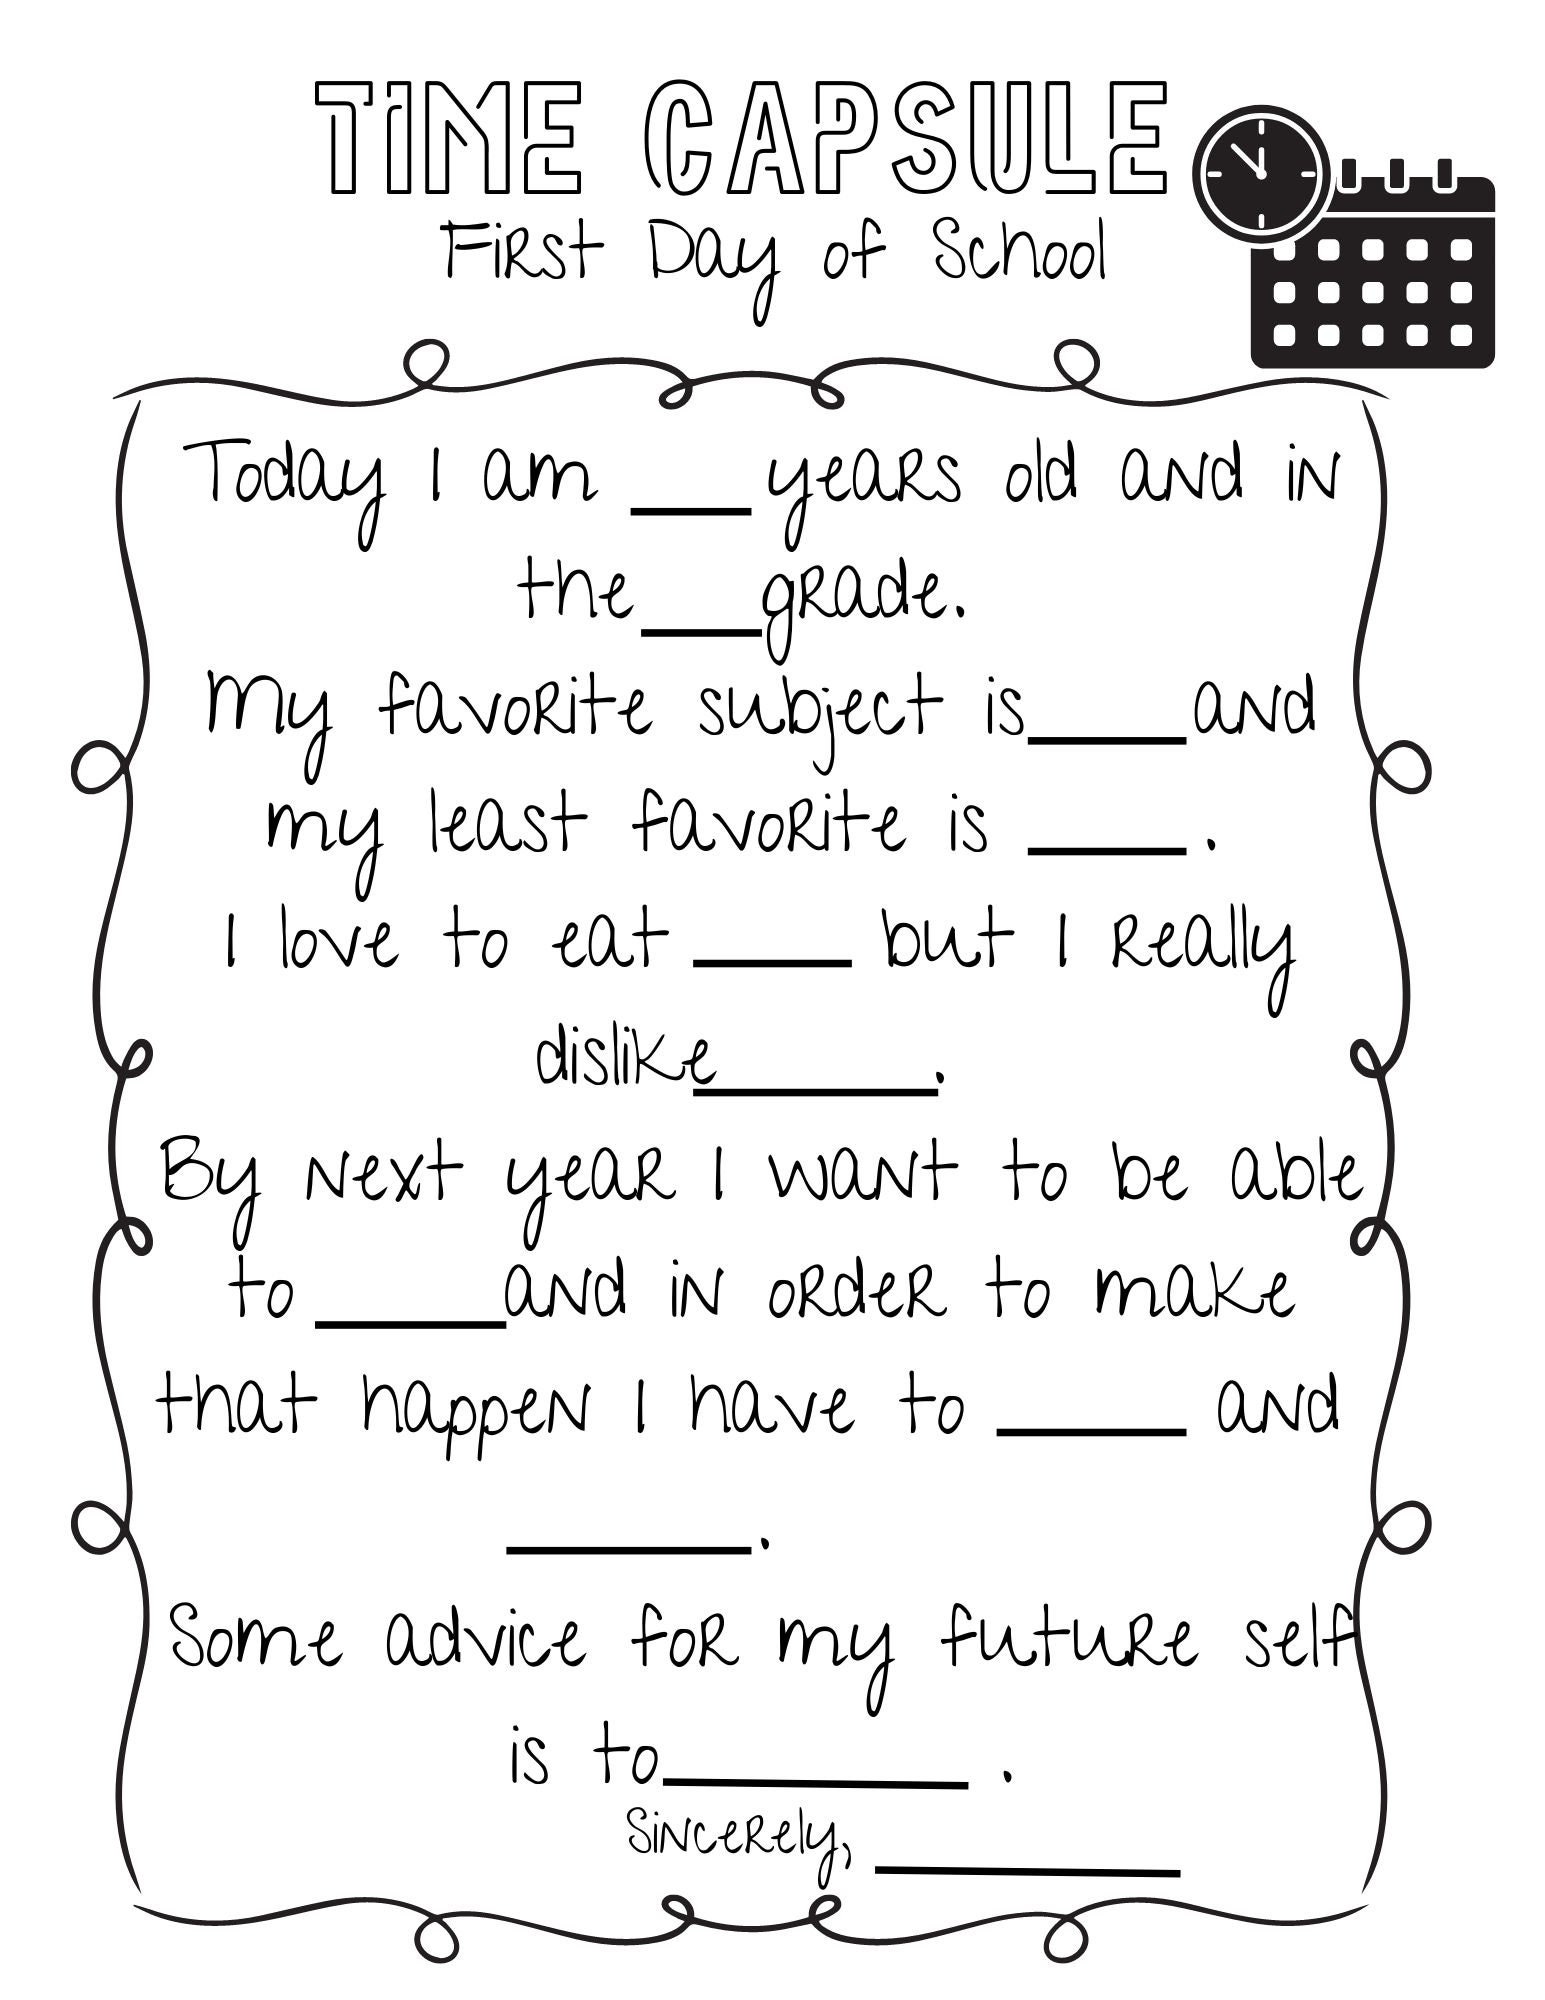 TIME CAPSULE
First Day of School
Today I am ___ years old and in
the ___ grade.
My favorite subject is ____ and
my least favorite is ____ .
I love to eat ____ but I really
dislike ______.
By next year I want to be able
to _____ and in order to make
that happen I have to _____ and
______.
Some advice for my future self
is to ________ .
Sincerely, ________